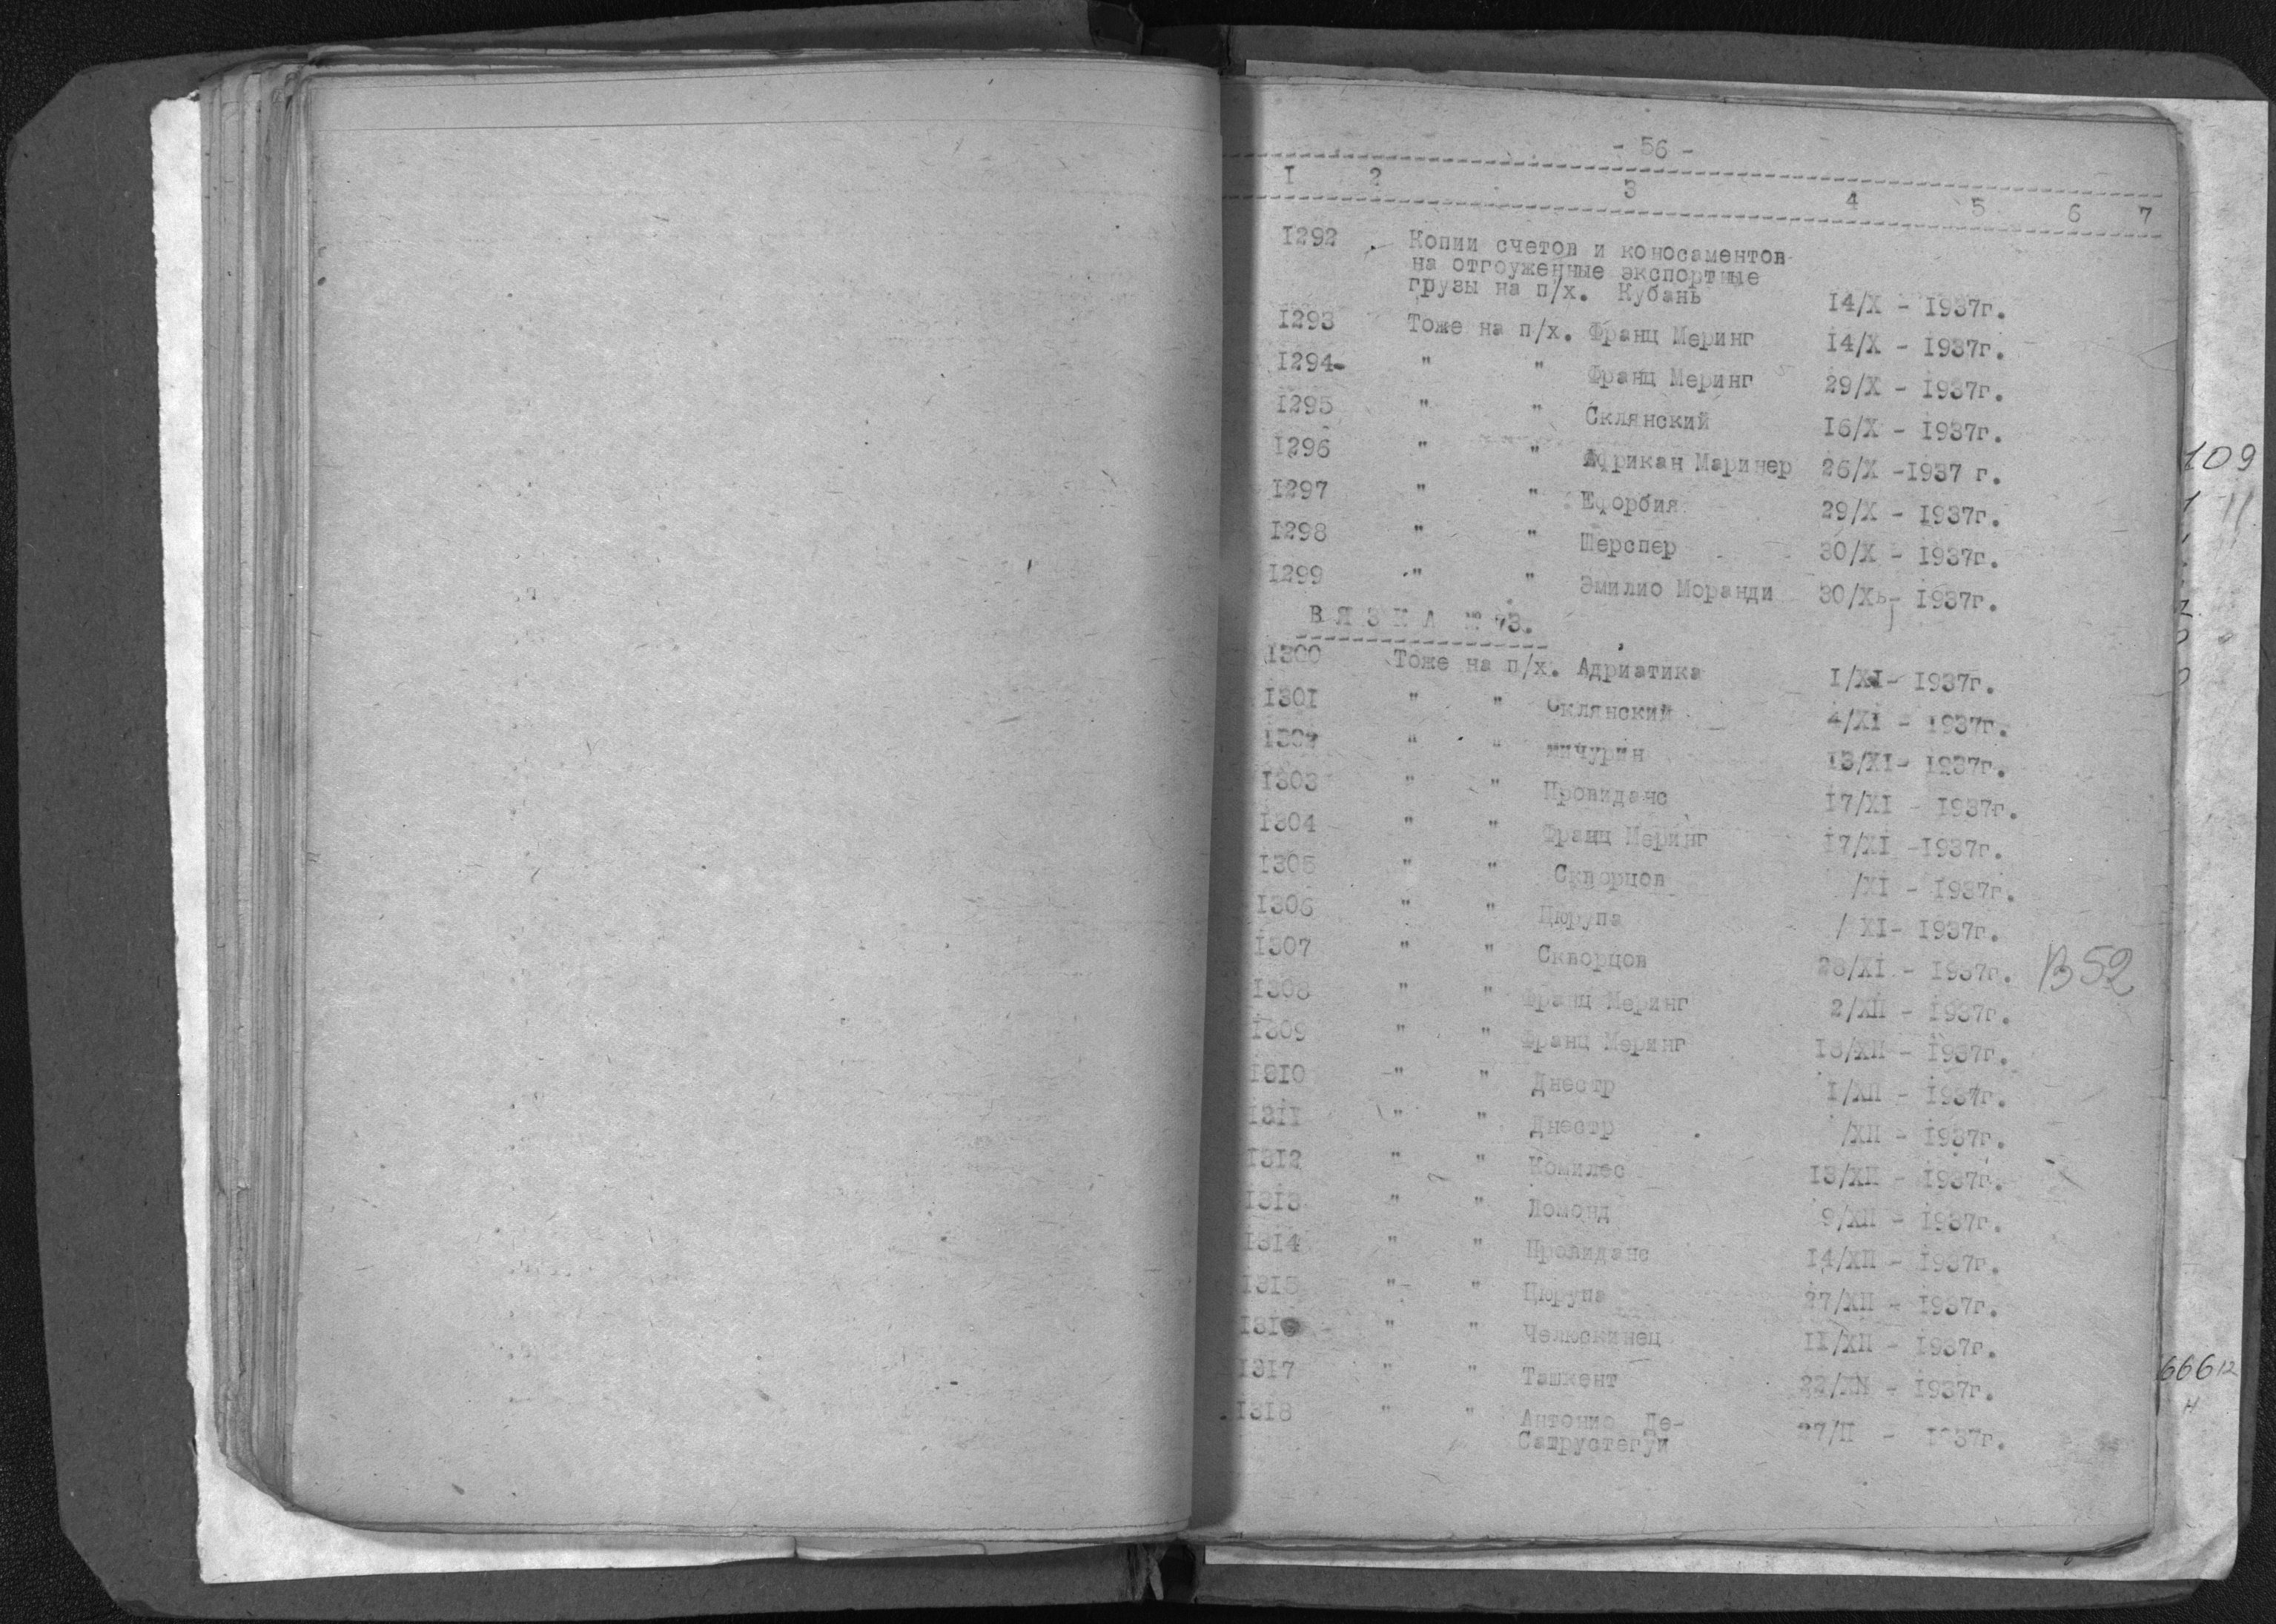 - 56 -
I 2 3 4 5 6 7
I292 Копии счетов и коносаментов
на отгоуженные экспортные
грузы на п/х. Кубань I4/X - I937г.
I293 Тоже на п/х. Франц Меринг I4/X - I937г.
I294- " " Франц Меринг 29/X - I937г.
I295 " " Склянский I6/X - I937г.
I296 " " Африкан Маринер 26/X -I937 г.
I297 " " Ефорбия 29/X - I937г.
I298 " " Шерспер 30/X - I937г.
I299 " " Эмилио Моранди 30/X - I937г.
В Я З К А № 73.
I300 Тоже на п/х. Адриатика I/XI- I937г.
I301 " " Склянский 4/XI - I937г.
I302 " " Мичурин I3/XI- I937г.
I303 " " Провиданс I7/XI - I937г.
I304 " " Франц Меринг I7/XI -I937г.
I305 " " Скворцов /XI - I937г.
I306 " " Цюрупа / XI- I937г.
I307 " " Скворцов 28/XI - I937г. В 52
I308 " " Франц Меринг 2/XII - I937г.
I309 " " Франц Меринг I3/XII - I937г.
I3I0 -" " Днестр I/XII - I937г.
I3II " " Днестр /XII - I937г.
I3I2 " " Комилес I3/XII - I937г.
I3I3 " " Ломонд 9/XII - I937г.
I3I4 " " Провиданс I4/XII - I937г.
I3I5 "- " Цюрупа 27/XII - I937г.
I3I6 " " Челюскинец II/XII - I937г.
I3I7 " " Ташкент 22/XII - I937г.
I3I8 " " Антонио Де-
Сатрустегуи 27/II - I937г.
109
666 12
н